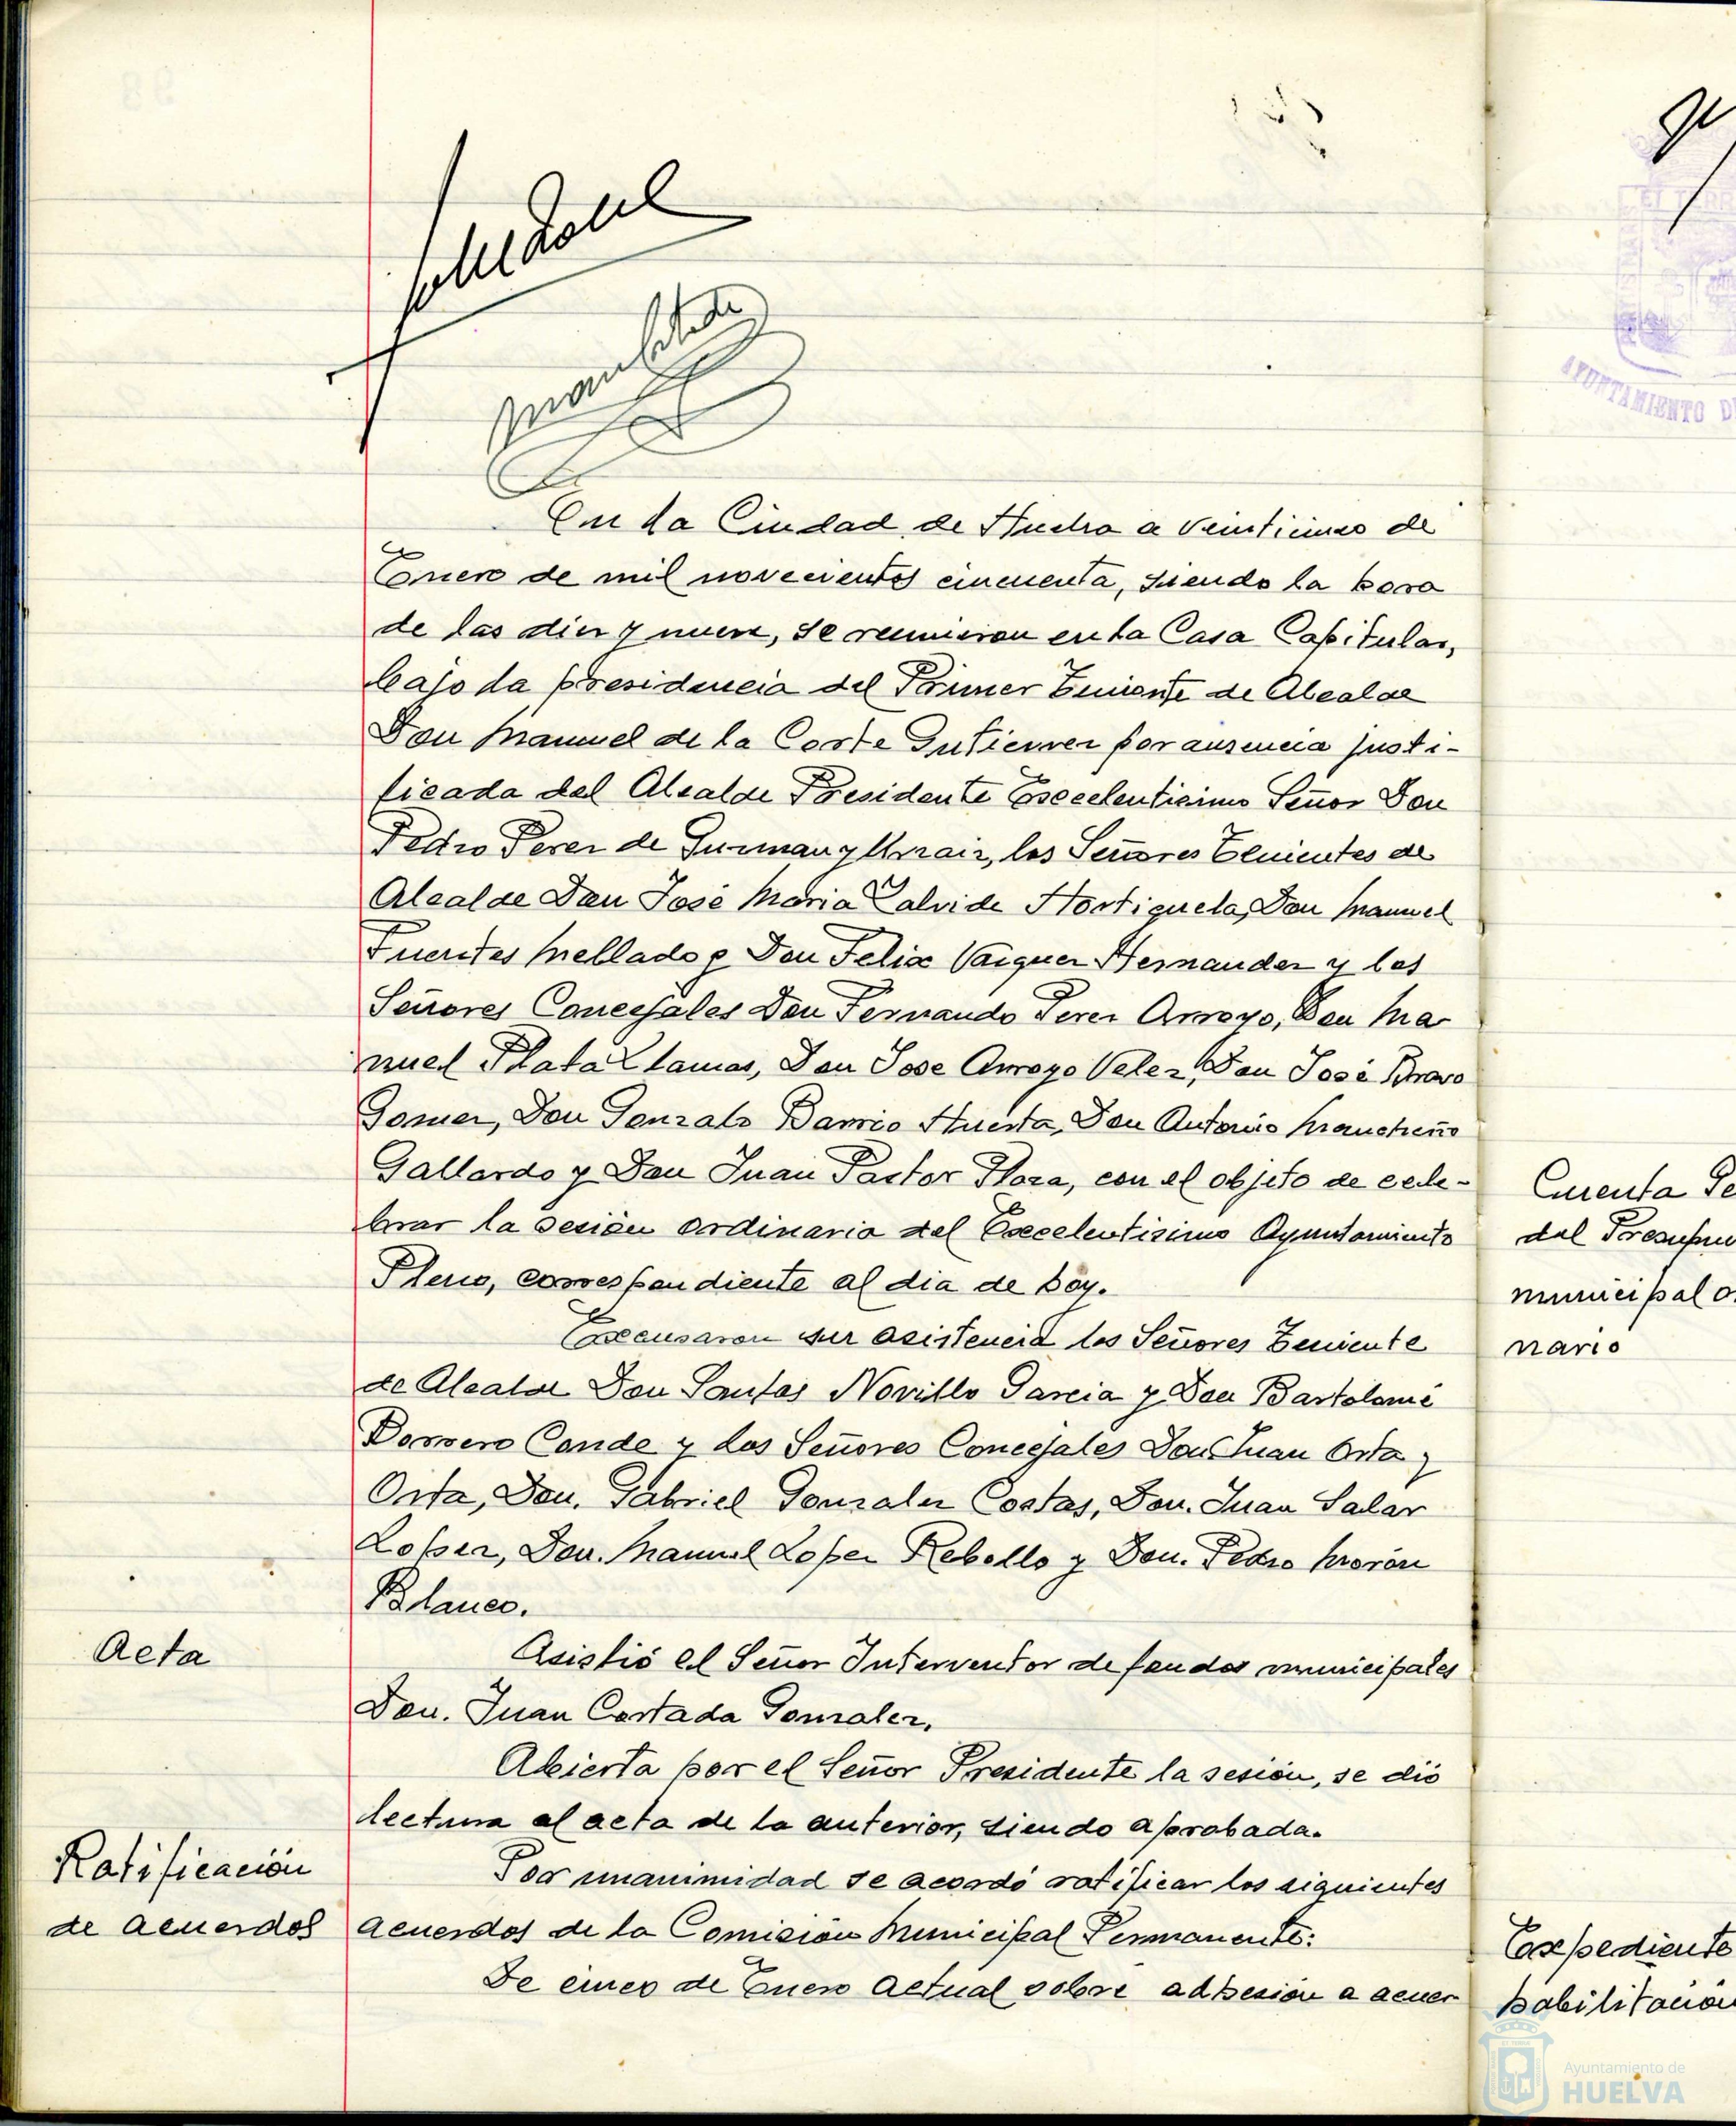 En la Ciudad de Huelva a veinticinco de
Enero de mil novecientos cincuenta, siendo la hora
de las diez y nueve, se reunieron en la Casa Capitular,
bajo la presidencia del Primer Teniente de Alcalde
Don Manuel de la Corte Gutierrez por ausencia justi-
ficada del Alcalde Presidente Excelentisimo Señor Don
Pedro Perez de Guzman y Urzaiz, los Señores Tenientes de
Alcalde Don José Maria Zalvide Hortiguela, Don Manuel
Fuentes Mellado y Don Felix Vazquez Hernandez y los
Señores Concejales Don Fernando Perez Arroyo, Don Ma
nuel Plata Llamas, Don Jose Arroyo Velez, Don José Bravo
Gomez, Don Gonzalo Barrio Huerta, Don Antonio Mancheño
Gallardo y Don Juan Pastor Plaza, con el objeto de cele-
brar la sesión ordinaria del Excelentisimo Ayuntamiento
Pleno, correspondiente al dia de hoy.
Excusaron su asistencia los Señores Teniente
de Alcalde Don Santos Novillo Garcia y Don Bartolomé
Romero Conde y los Señores Concejales Don Juan Orta y
Orta, Don. Gabriel Gonzalez Costas, Don. Juan Salar
Lopez, Don. Manuel Lopez Rebollo y Don. Pedro Morón
Blanco.
Acta
Asistió el Señor Interventor de fondos municipales
Don. Juan Cortada Gonzalez.
Abierta por el Señor Presidente la sesión, se dió
lectura al acta de la anterior, siendo aprobada.
Ratificación
de acuerdos
Por unanimidad se acordó ratificar los siguientes
acuerdos de la Comisión Municipal Permanente:
De cinco de Enero actual sobre adhesión a acuer
AYUNTAMIENTO D
Cuenta Ge
del Presupu
municipal o
nario
Expediente
habilitacion
Ayuntamiento de
HUELVA